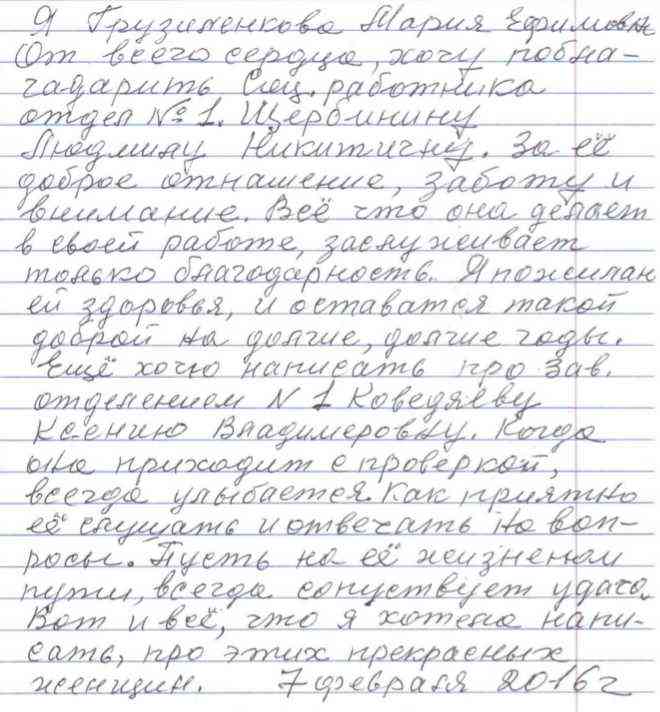 Я Грузименкова Мария Ефимовна
От всего сердца, хочу побла-
гадарить Соц. работника
отдел № 1. Щербинину
Людмилу Никитичну. За её
доброе отнашение, заботу и
внимание. Всё что она делает
в своей работе, заслуживает
только благодарность. Я пожилаю
ей здоровья, и оставатся такой
доброй на долгие, долгие годы.
Ещё хочю написать про Зав.
отделением N 1 Коведяеву
Ксению Владимеровну. Когда
она приходит с проверкой,
всегда улыбается. Как приятно
её слушать и отвечать на воп-
росы. Пусть на её жизненом
пути, всегда сопуствует удача.
Вот и всё, что я хотела напи-
сать, про этих прекрасных
женщин. 7 февраля 2016г